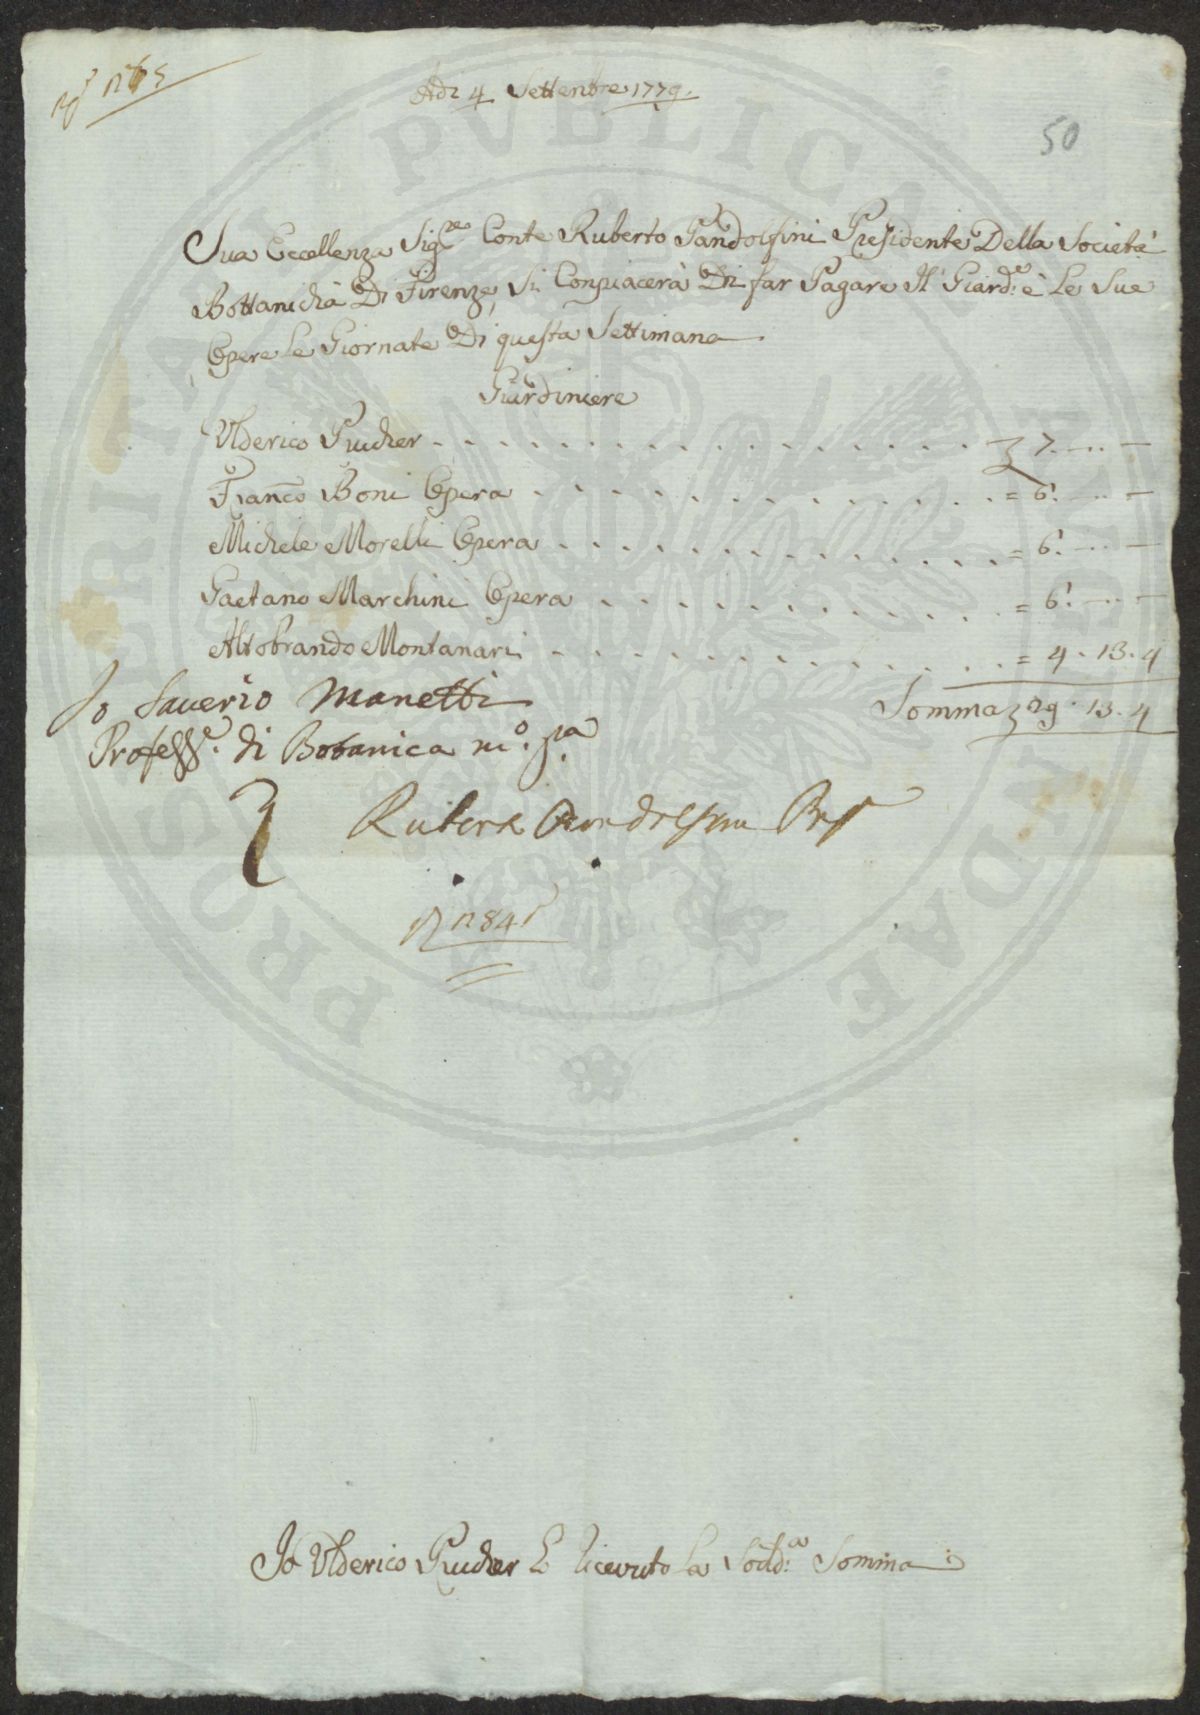 N° 1265
Adi 4 Settenbre 1779.
50
Sua Eccellenza Sig:re Conte Ruberto Pandolfini Presidente Della Società
Bottanichà Di Firenze, Si Conpiacerà Di far Pagare Il Giard:e è Le Sue
Opere Le Giornate Di questa Settimana
Giardiniere
Ulderico Prucher . . . . . . . . . . . . . . . . £ 7. -- . -- . --
Franco Boni Opera . . . . . . . . . . . . . = 6. -- . -- . --
Michele Morelli Opera . . . . . . . . . . . . = 6. -- . -- . --
Gaetano Marchini Opera . . . . . . . . . . . = 6. -- . -- . --
Altobrando Montanari . . . . . . . . . . . . = 4 . 13 . 4
Somma £ 29 . 13 . 4
Io Saverio Manetti
Profess.e di Botanica m.o p.a
Ruberto Pandolfini Pres
N 284
Io Ulderico Prucher ò ricevuto la Sodd:a Somma
PROSPERITATI PVBLICAE AVGENDAE